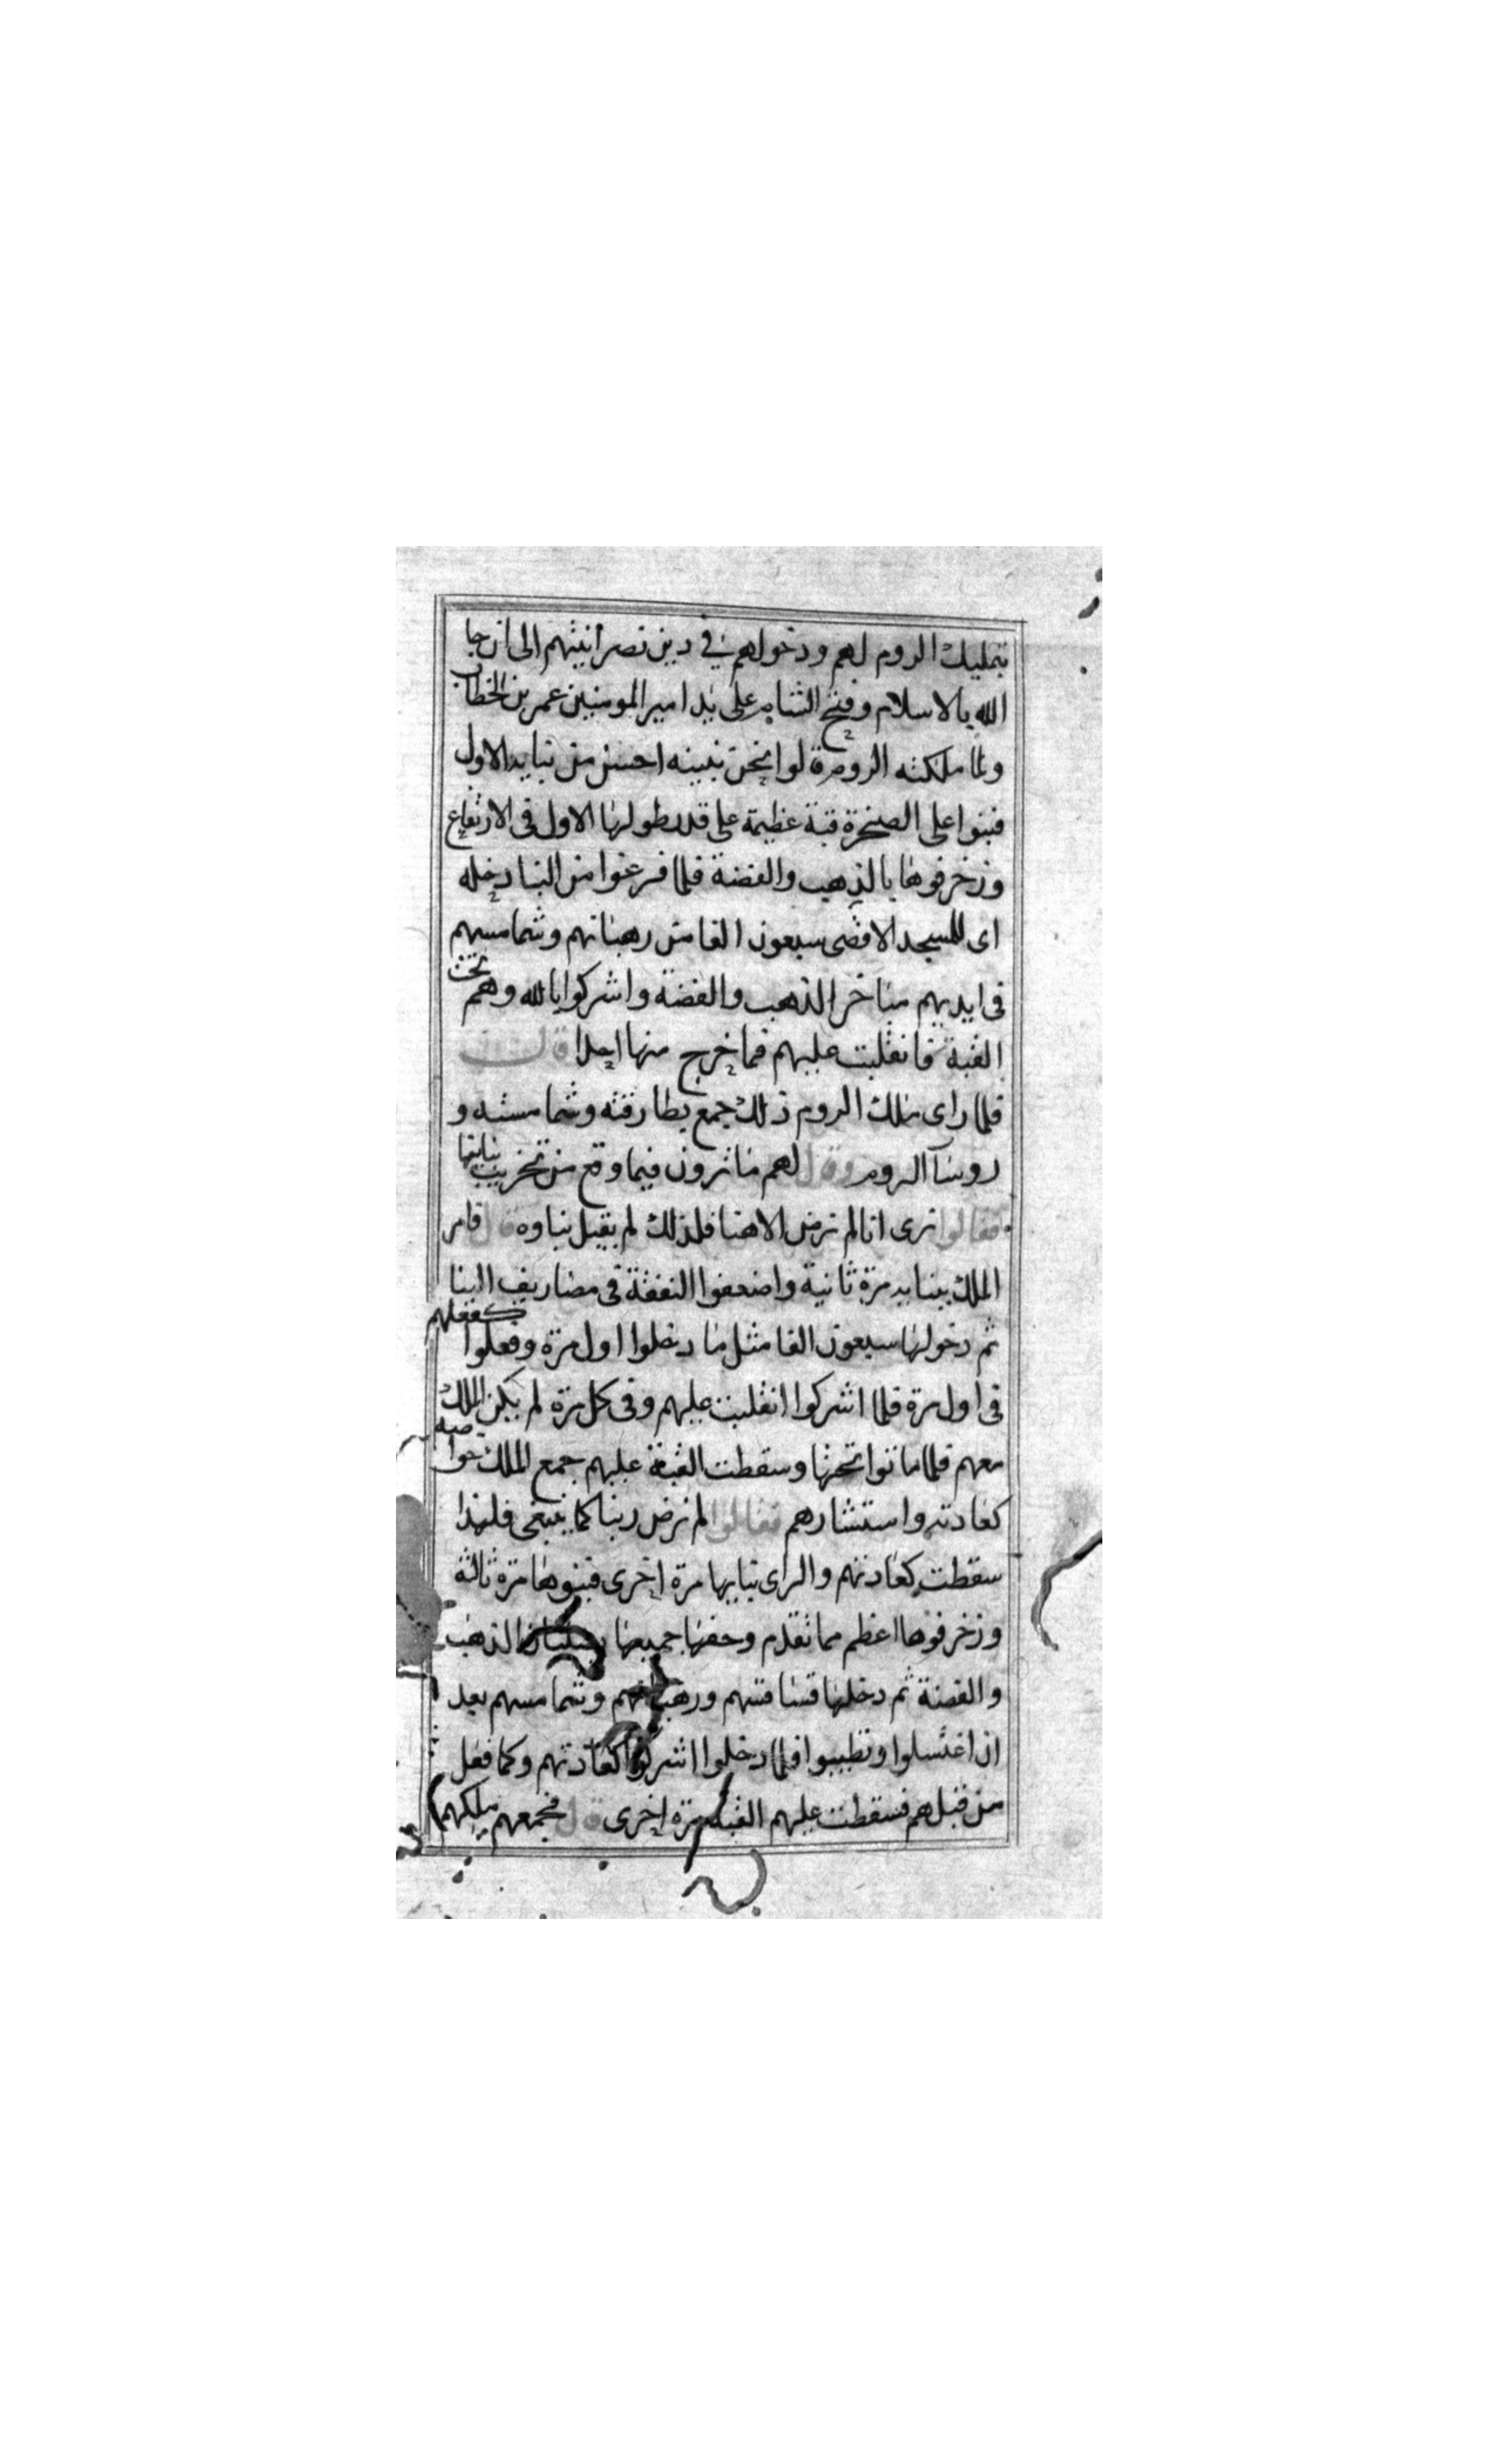 بتمليك الروم لهم ودخولهم في دين نصرانيتهم الى ان جا
الله بالاسلام وفتح الشام على يد امير المومنين عمر بن الخطاب
ولما ملكته الروم قالوا نحن نبينه احسن من بنايه الاول
فبنوا على الصخرة قبة عظيمة على قدر طولها الاول في الارتفاع
وزخرفوها بالذهب والفضة فلما فرغوا من البنا دخله
اى المسجد الاقصى سبعون الفا من رهبانهم وشمامسهم
في ايديهم مباخر الذهب والفضة واشركوا بالله وهم تحت
القبة فانقلبت عليهم فما خرج منها احدا قال
فلما راى ملك الروم ذلك جمع بطارقته وشمامسته و
روسآ الروم وقال لهم ما ترون فيما وقع من تخريب بنايها
فقالوا نرى انا لم نرض الاهنا فلذلك لم يقبل بناوه قال فامر
الملك ببنايه مرة ثانية واضعفوا النفقة في مصاريف البنا
ثم دخولها سبعون الفا مثل ما دخلوا اول مرة وفعلوا كفعلهم
في اول مرة فلما اشركوا انقلبت عليهم وفي كل مرة لم يكن الملك
معهم فلما ماتوا تحتها وسقطت القبة عليهم جمع الملك خواصه
كعادته واستشارهم فقالوا لم نرض ربنا كما ينبغي فلهذا
سقطت كعادتهم والراى بنايها مرة اخرى فبنوها مرة ثالثة
وزخرفوها اعظم مما تقدم وحفها جميعها الذهب
والفضة ثم دخلها قساقستهم ورهبانهم وشمامسهم بعد
ان اغتسلوا وتطيبوا فلما دخلوا اشركوا كعادتهم وكما فعل
من قبلهم فسقطت عليهم القبة مرة اخرى قال فجمعهم ملكهم